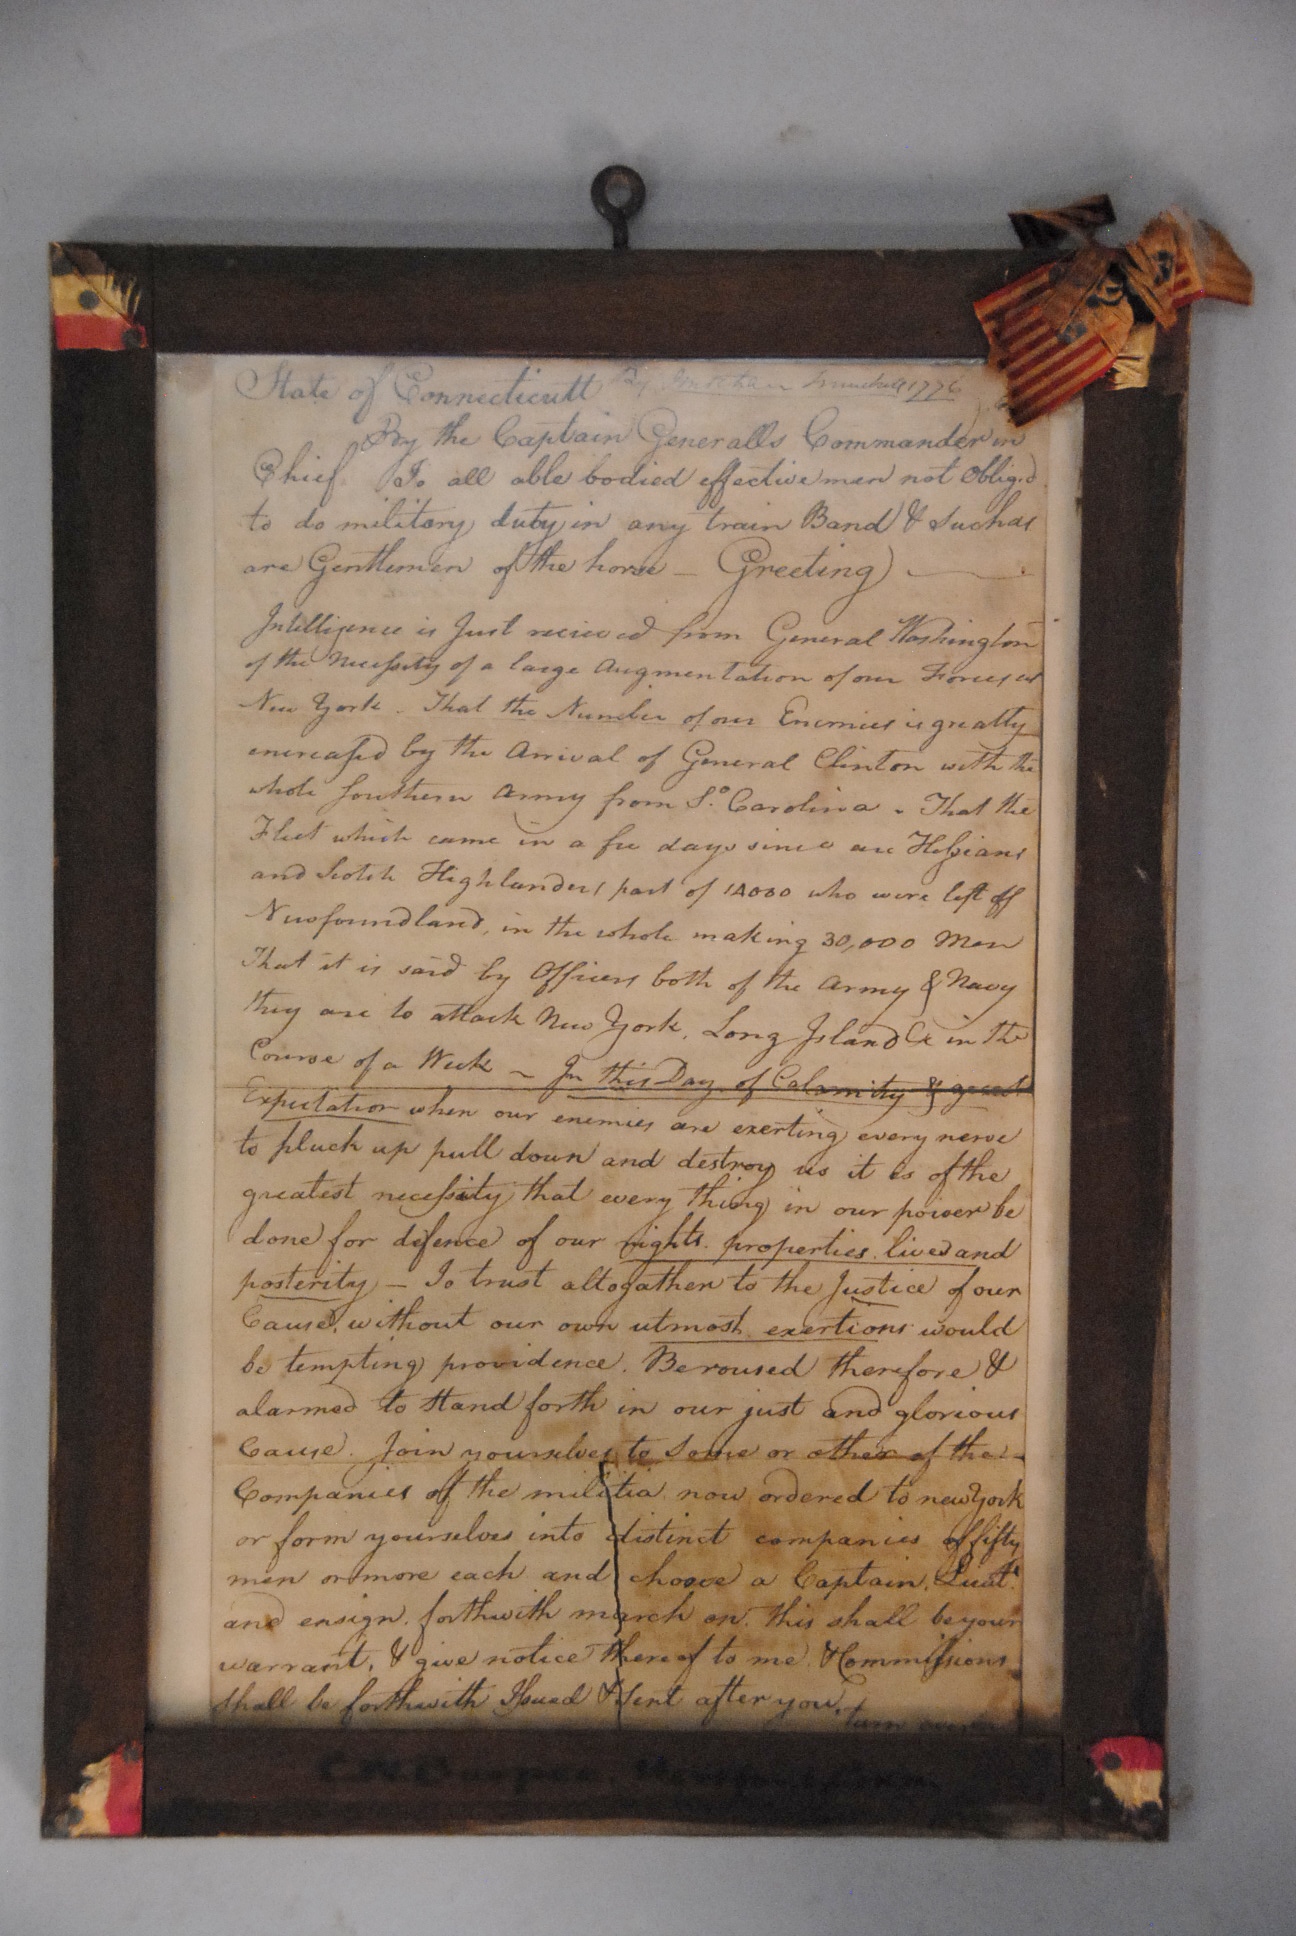 State of Connecticutt By Jonathan Trumbull 1776
By the Captain Generalls Commander in
Chief To all able bodied effective men not Oblig.d
to do military duty in any train Band & Such as
are Gentlemen of the horse — Greeting
Intelligence is Just recieved from General Washington
of the Necessity of a large Augmentation of our Forces at
New York . That the Number of our Enemies is greatly
encreased by the Arrival of General Clinton with the
whole Southern Army from So. Carolina . That the
Fleet which came in a few days since are Hessians
and Scotch Highlanders part of 14000 who were left off
Newfoundland, in the whole making 30,000 Men
That it is said by Officers both of the Army & Navy
they are to attack New York, Long Island &c in the
Course of a Week ~ In this Day of Calamity & great
Expectation when our enemies are exerting every nerve
to pluck up pull down and destroy us it is of the
greatest necessity that every thing in our power be
done for defence of our rights. properties. lives and
posterity — To trust altogather to the Justice of our
Cause, without our own utmost exertions would
be tempting providence. Be roused therefore &
alarmed to stand forth in our just and glorious
Cause. Join yourselves to Some or other of the
Companies of the militia now ordered to new York
or form yourselves into distinct companies of fifty
men or more each and choose a Captain, Lieut.t
and ensign. forthwith march on. this shall be your
warrant, & give notice thereof to me. & Commissions
shall be forthwith Issued & sent after you.
turn over